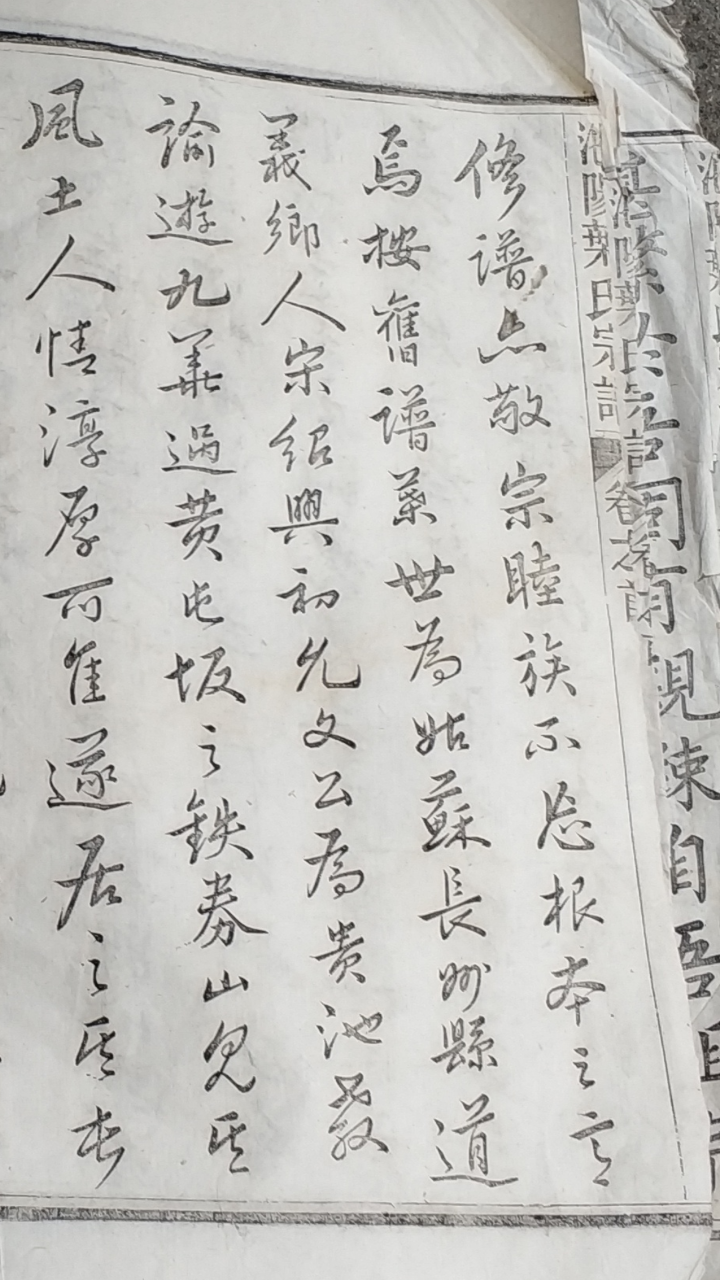 修譜亦敬宗睦族不忘根本之意
焉按舊譜葉世為姑蘇長州縣道
義鄉人宋紹興初允文公為貴池教
諭遊九華過黄屯坂之鉄券山見其
風土人情淳厚可隹遂居之其村
葉氏宗譜